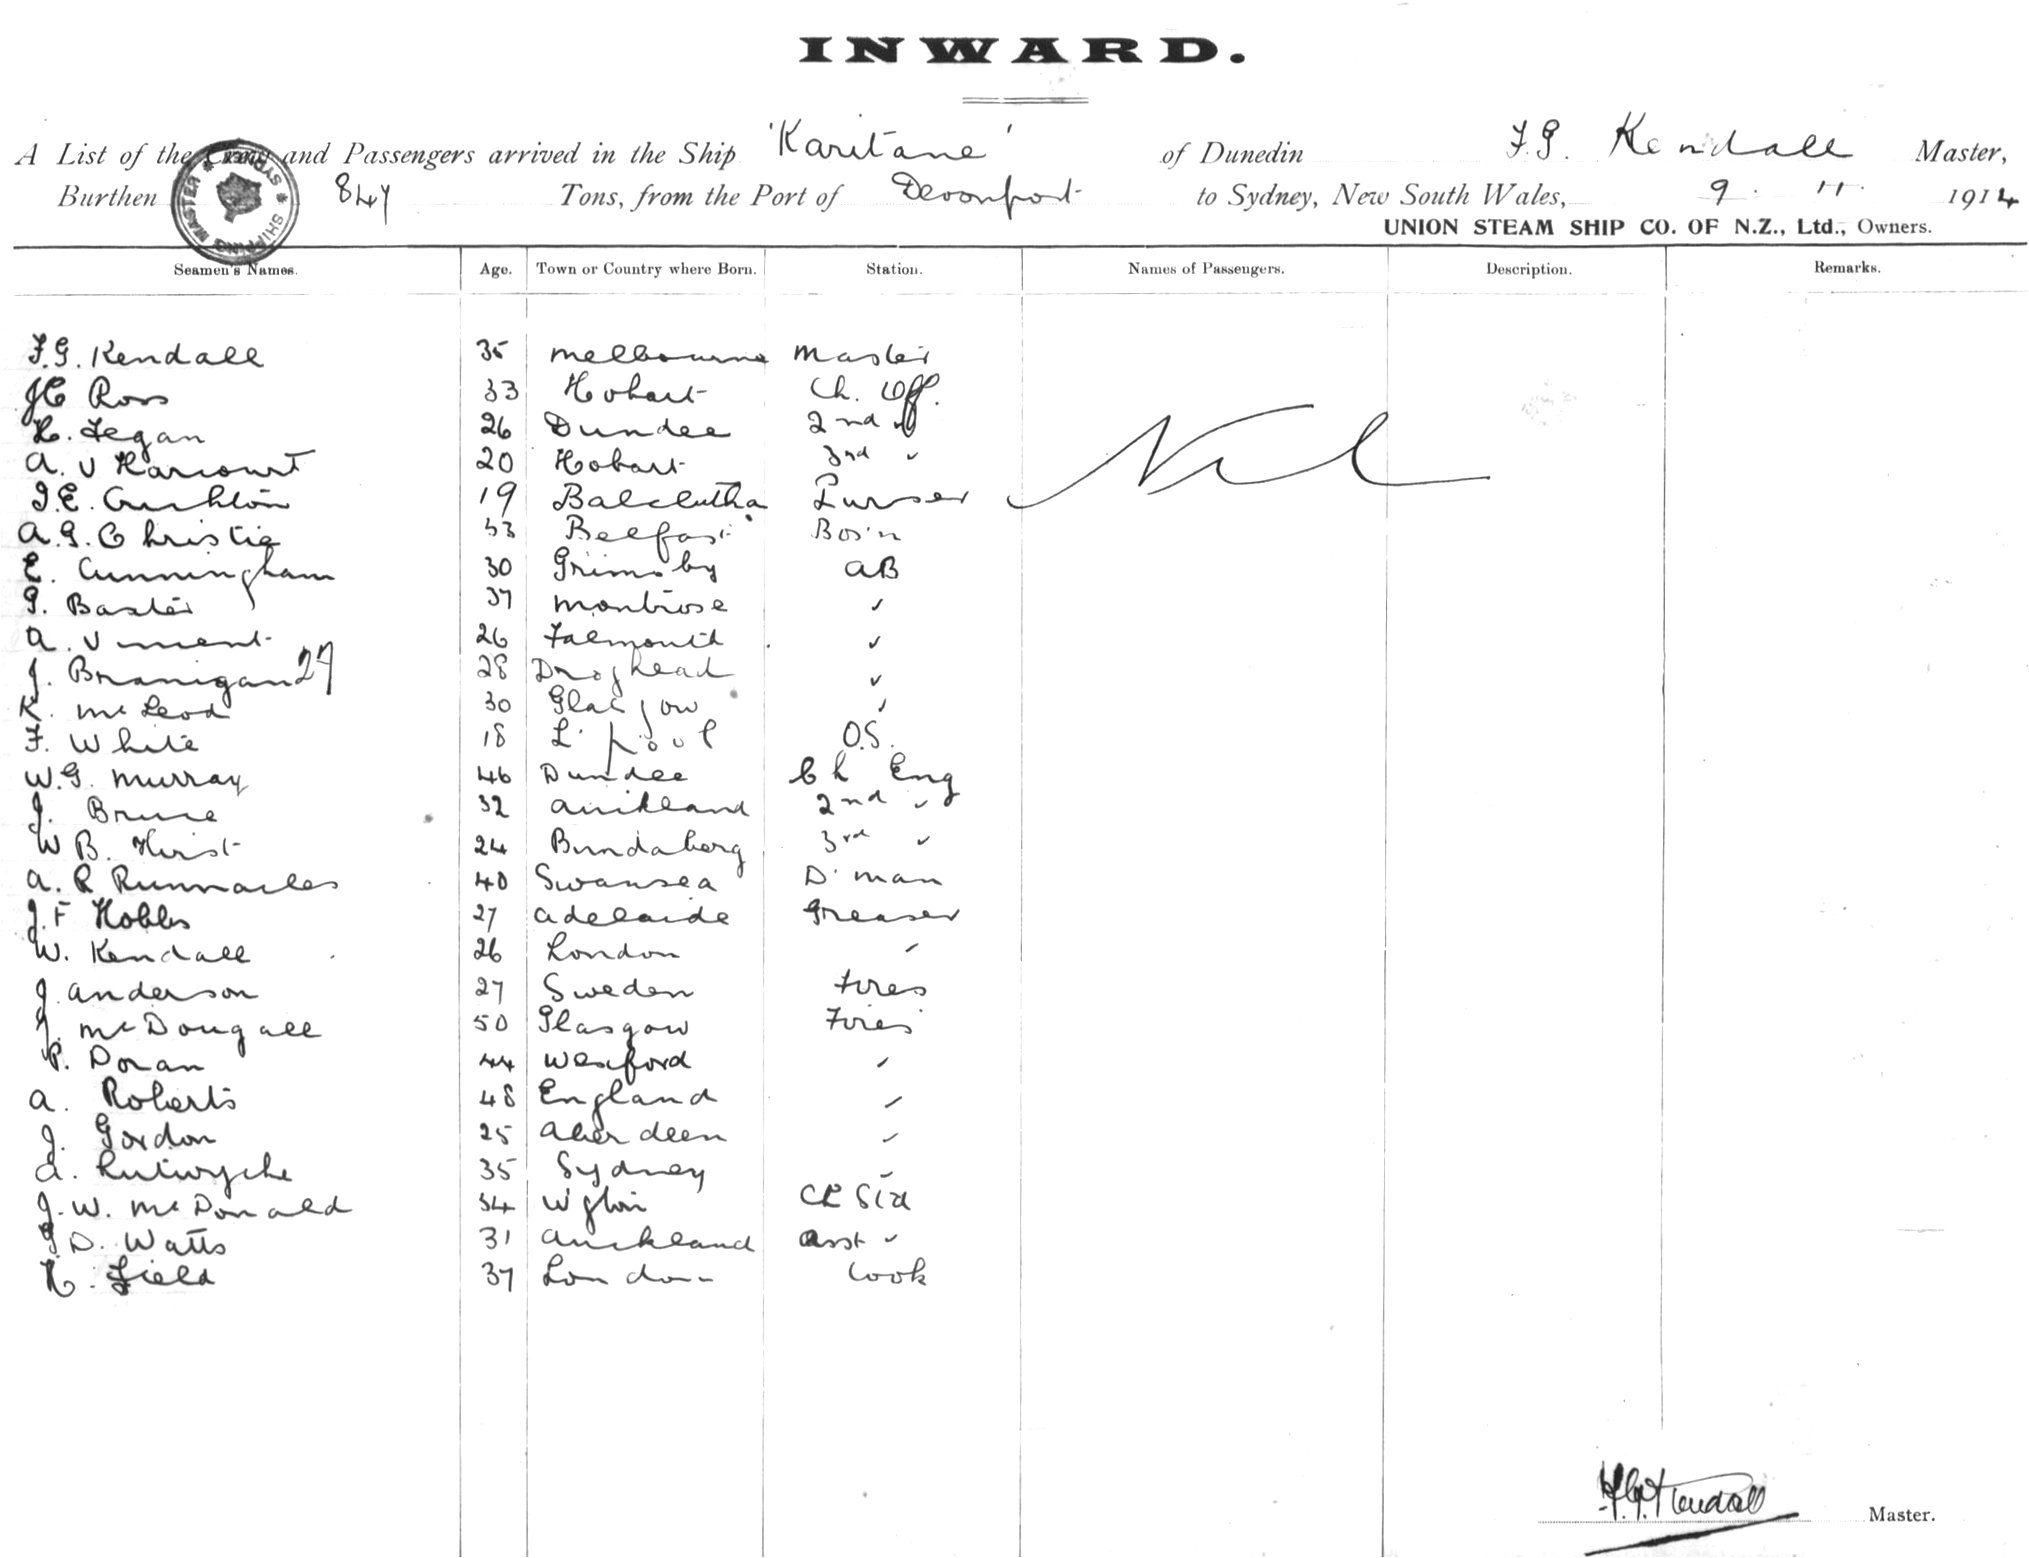 INWARD.
A List of the Crew and Passengers arrived in the Ship 'Karitane' of Dunedin F.G. Kendall Master,
Burthen 847 Tons, from the Port of Devonport to Sydney, New South Wales, 9 11 1914
SHIPPING MASTER SYDNEY
UNION STEAM SHIP CO. OF N.Z., Ltd., Owners.
Seamen's Names. Age. Town or Country where Born. Station. Names of Passengers. Description. Remarks.
F.G. Kendall 35 Melbourne Master
JC Ross 33 Hobart Ch. Off.
H. Fegan 26 Dundee 2nd "
A. V Harcourt 20 Hobart 3rd "
Nil
J.E. 19 Balclutha Purser
A.G. Christie 33 Belfast Bos'n
E. Cunningham 30 Grimsby AB
G. Baxter 37 Montrose "
A. Vincent 26 Falmouth "
J. Branigan 27 28 Droghead "
K. McLeod 30 Glasgow "
F. White 18 L'pool O.S.
W.G. Murray 46 Dundee Ch Eng
J. Bruce 32 Auckland 2nd "
W B. Hirst 24 Bundaberg 3rd "
A. R Runnacles 40 Swansea D'man
J.F Hobbs 27 Adelaide Greaser
W. Kendall 26 London "
J. Anderson 27 Sweden Fires
J. McDougall 50 Glasgow Fires
P. Doran 44 Wexford "
A. Roberts 48 England "
J. Gordon 25 Aberdeen "
A. Lutwyche 35 Sydney "
J.W. McDonald 34 W'gton Ch Std
G D. Watts 31 Auckland Asst "
H. Field 37 London Cook
F.G. Kendall Master.